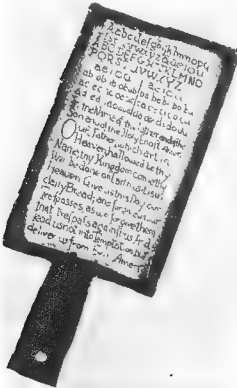 Aabcdefghijklmnopq
rstuvwxyz&aeiou
ABCDEFGHIJKLMNO
PQRSTUVWXYZ
aeiou aeiou
ab eb ib ob ub ba be bi bo bu
ac ec ic oc uc ca ce ci co cu
ad ed id od ud da de di do du
In the Name of the Father and the
Son and of the Holy Ghost Amen.
Our Father, which art in
Heaven, hallowed be thy
Name, thy Kingdom come, thy
Will be done on Earth as it is in
Heaven. Give us this Day our
daily Bread, and forgive us our
Trespasses as we forgive them
that trespass against us. And
lead us not into Temptation, but
deliver us from Evil. Amen